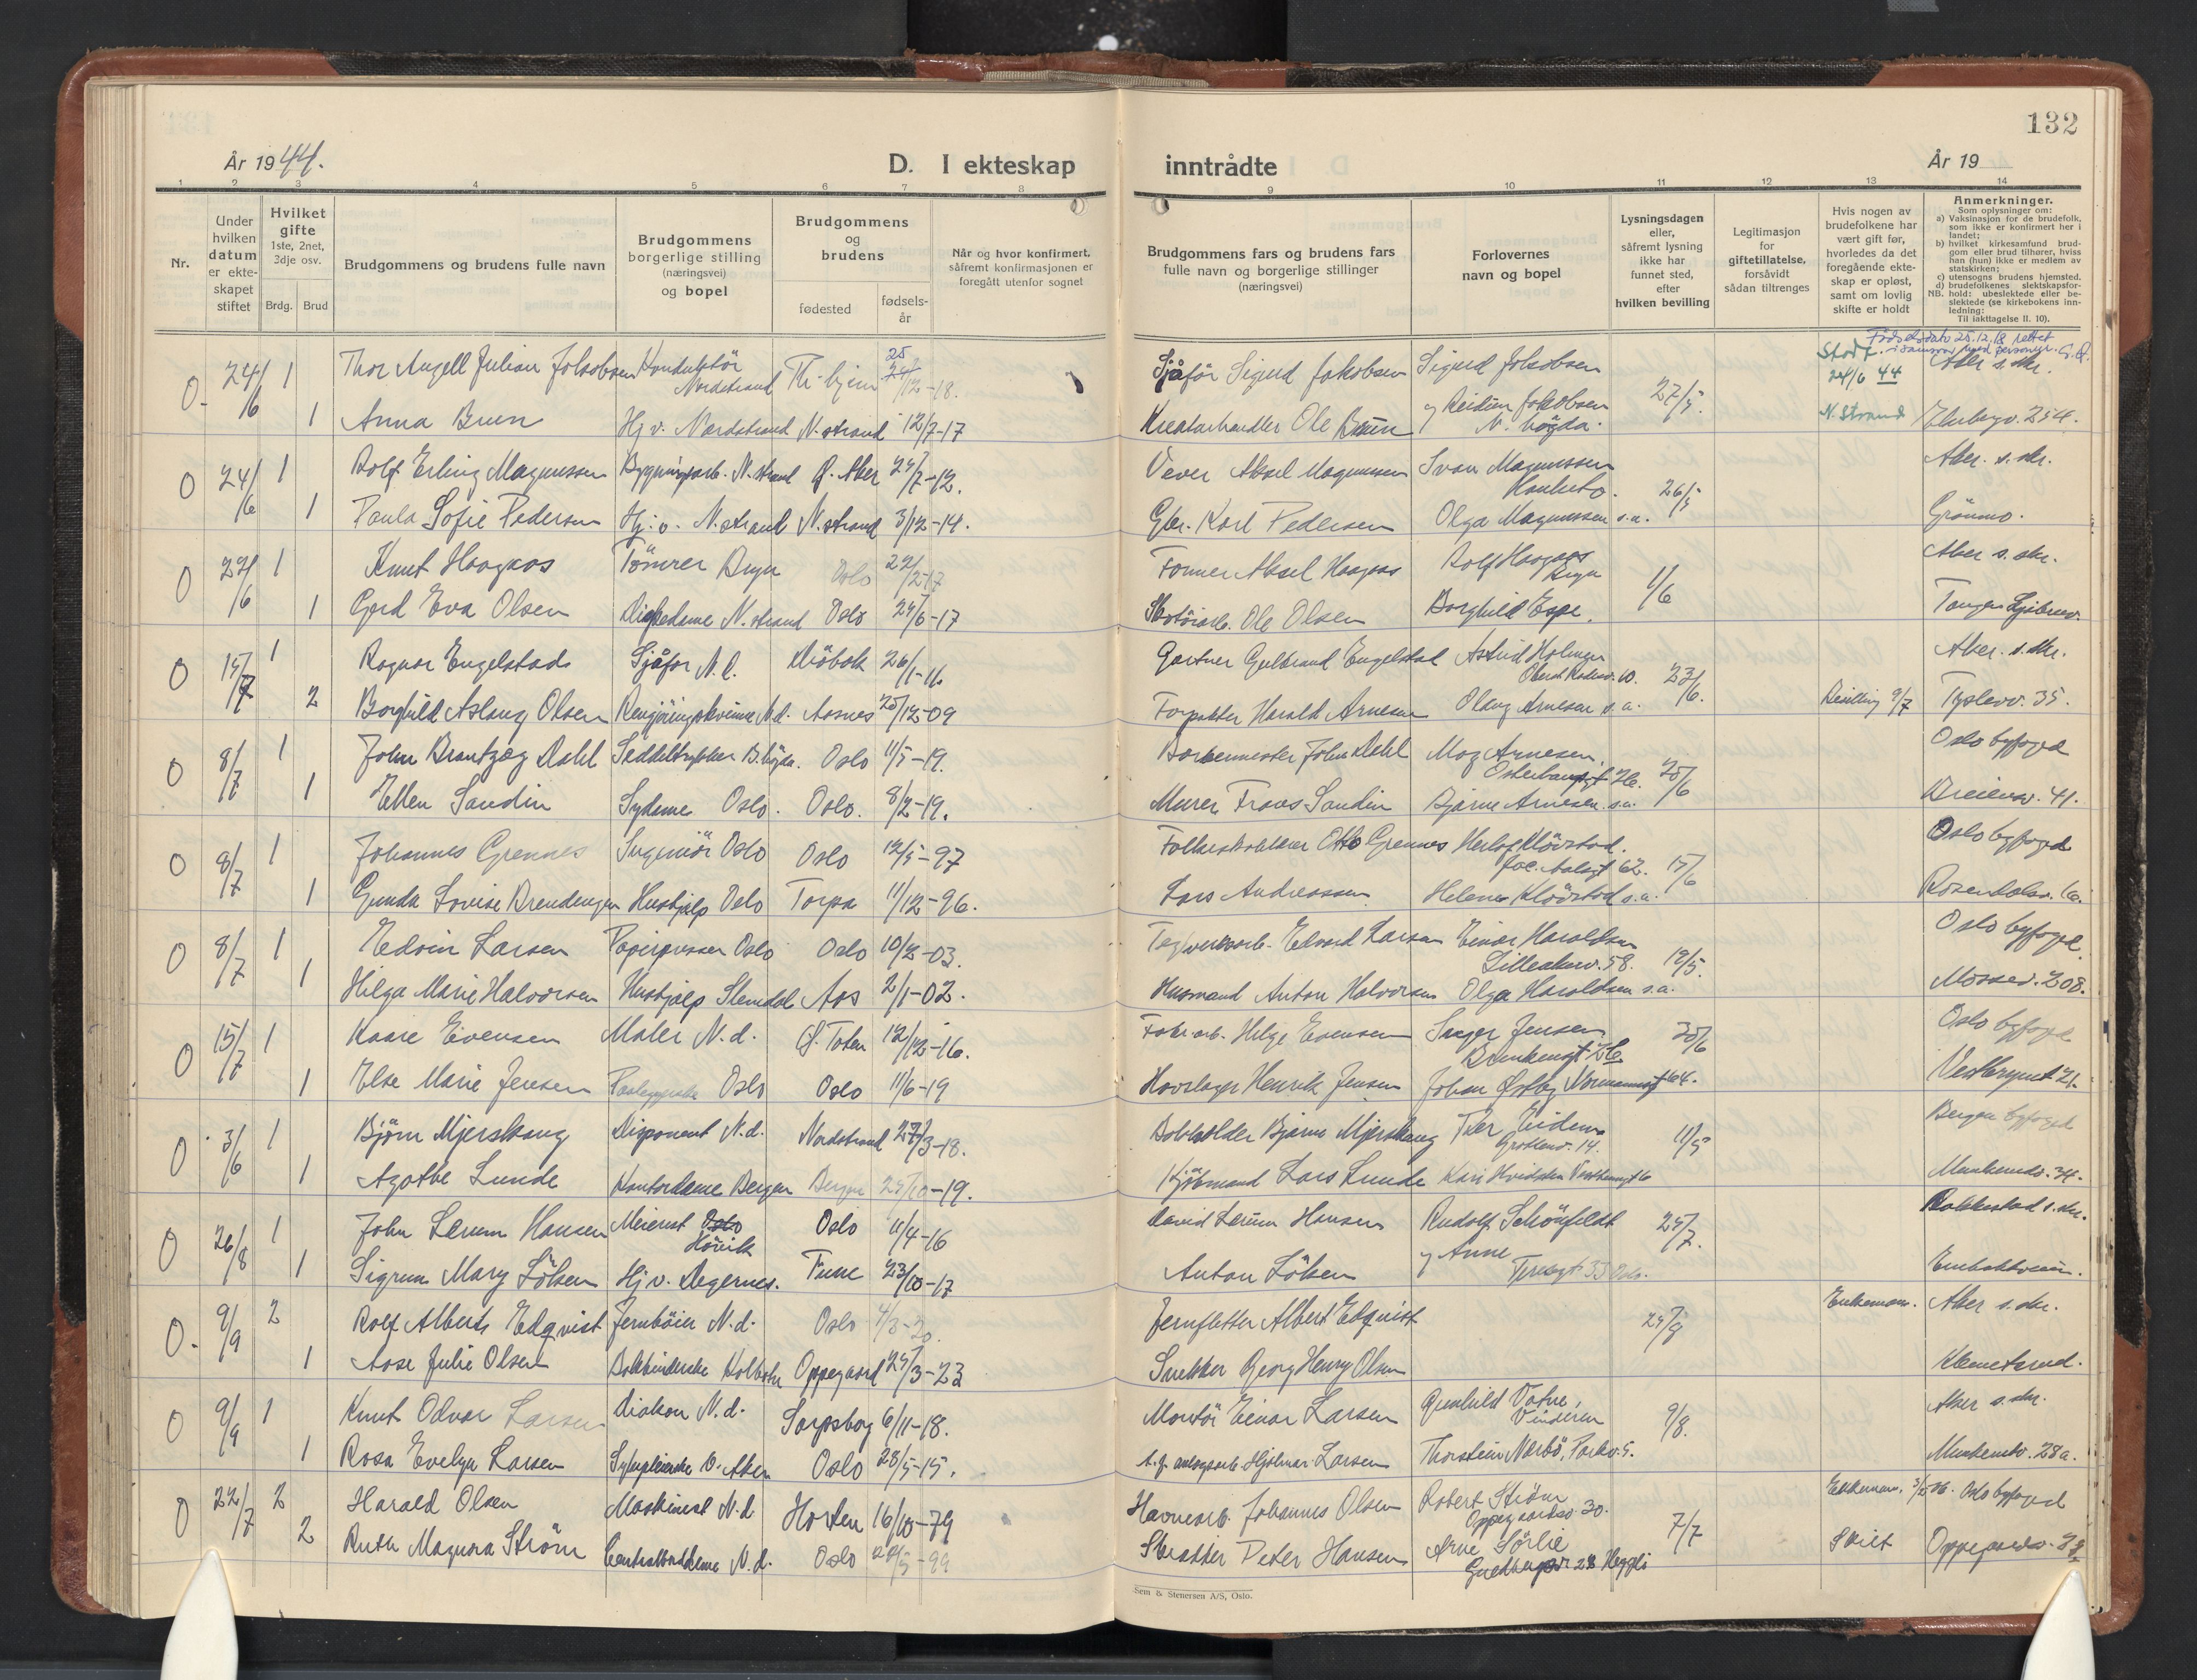 132
År 1944.
D. I ekteskap inntrådte
År 19
1 2 3 4 5 6 7 8 9 10 11 12 13 14
Nr.
Under hvilken datum er ekteskapet stiftet
Hvilket gifte 1ste, 2net, 3dje osv.
Brdg. Brud
Brudgommens og brudens fulle navn
Brudgommens borgerlige stilling (næringsvei) og bopel
Brudgommens og brudens
fødested
fødsels-år
Når og hvor konfirmert, såfremt konfirmasjonen er foregått utenfor sognet
Brudgommens fars og brudens fars fulle navn og borgerlige stillinger (næringsvei)
Forlovernes navn og bopel
Lysningsdagen eller, såfremt lysning ikke har funnet sted, efter hvilken bevilling
Legitimasjon for giftetillatelse, forsåvidt sådan tiltrenges
Hvis nogen av brudefolkene har vært gift før, hvorledes da det foregående ekteskap er opløst, samt om lovlig skifte er holdt
Anmerkninger.
Som oplysninger om:
a) Vaksinasjon for de brudefolk, som ikke er konfirmert her i landet;
b) hvilket kirkesamfund brudgom eller brud tilhører, hviss han (hun) ikke er medlem av statskirken;
c) utensogns brudens hjemsted.
d) brudefolkenes slektskapsforhold: ubeslektede eller beslektede (se kirkebokens innledning:
NB.
Til iakttagelse II. 10).
Fødselsdato 25.12.18 rettet i samsvar med personr. G.Q.
O. 24/6 1 Thor Angell Julian Jakobsen Konduktör Nordstrand Tr.hjem 25 24/12-18. Sjåför Sigurd Jakobsen Sigurd Jakobsen 27/5. Stadf. 24/6 44 Aker s.skr.
1 Anna Brun Hj.v. Nordstrand N.strand 12/7-17 Kreaturhandler Ole Bruun og Reidun Jakobsen N. högda. N.Strand Ekebergv. 254.
O 24/6 1 Rolf Erling Magnussen Bygningsarb. N.strand Ø. Aker 24/7-12. Vever Aksel Magnussen Ivar Magnussen 26/5 Aker. s.skr.
1 Paula Sofie Pedersen Hj.v. N.strand N.strand 3/12-14. Gbr. Karl Pedersen Olga Magnussen s.a. Grönmo.
O 22/6 1 Knut Haagaas Tömrer Bryn Oslo 22/2-17 Former Aksel Haagaas Rolf Haagaas Bryn 1/6 Aker s.skr.
1 Gerd Eva Olsen N.strand Oslo 24/6-17 Ole Olsen Borghild Espe.
O 15/7 1 Ragnar Engelstad Sjåfor N.d. Dröbak 26/1-11. Gartner Gulbrand Engelstad Astrid 23/6. Aker. s.skr.
2 Borghild Aslaug Olsen Rengjöringskvinne N.d. Aasnes 25/12-09 Forpakter Harald Arnesen Olaug Arnesen s.a. Bevilling 9/7 35.
O 8/7 1 John Brantzæg Dahl Seddeltrykker B.högda. Oslo 11/5-19. John Dahl Arnesen. Osterhausgt 26. 25/6 Oslo byfogd
1 Ellen Sandin Sydame Oslo. Oslo. 8/2-19. Murer Frans Sandin Bjarne Arnesen. s.a. Breienv. 41.
O 8/7 1 Johannes Grennes Ingeniör Oslo Oslo 12/5-97 Folkeskolelærer Otto Grennes Herlof Klövstad. Jac. Aalsgt 62. 15/6 Oslo byfogd
1 Gunda Lovise Brendengen Hushjelp Oslo Torpa 11/12-96. Lars Andreassen Helene Klövstad s.a. Rosendalsv. 16.
O 8/7 1 Edvin Larsen Papirpresser Oslo Oslo 10/2-03. Teglverksarb. Edvard Larsen Einar Haraldsen Lilleakerv. 58. 19/5. Oslo byfogd.
1 Helga Marie Halvorsen Hushjelp Slemdal Aas 2/1-02. Husmand Anton Halvorsen Olga Haraldsen s.a. Mossev. 208.
O 15/7 1 Kaare Evensen Maler N.d. Ø. Toten 12/12-16. Fabr.arb. Helge Evensen Jensen 30/6 Oslo byfogd
1 Else Marie Jensen Oslo Oslo 11/6-19 Hovslager Henrik Jensen Johan Østby Normannsgt 64.
O 3/6 1 Björn Mjerskaug Disponent N.d. Nordstrand 27/3-18. Bokholder Bjarne Mjerskaug 14. 11/5 Bergen byfogd
1 Agathe Lunde Kontordame Bergen Bergen 24/10-19. Kjöbmand Lars Lunde Kari Munkerudv. 34.
O 26/8 1 John Lerum Hansen Meierist Oslo Hövik Oslo 11/4-16 David Lerum Hansen Rudolf Schönfeldt 25/7. Rakkestad s.skr.
1 Sigrun Mary Löken Hj.v. Degernes. Tune 23/10-17 Anton Löken og Anne
O. 9/9 2 Rolf Alberts Edqvist Jernböier N.d. Oslo 4/3-20. Jernfletter Albert Edqvist 29/9 Enkemann. Aker s.skr.
1 Aase Julie Olsen Bokbinderske Kolbotn Oppegaard 24/3-23 Snekker Georg Henry Olsen Klemetsrud.
O 9/9 1 Knut Odvar Larsen Diakon N.d. Sarpsborg 6/11-18. Montör Einar Larsen Gunhild Vatne, Vinderen 9/8. Aker s.skr.
1 Rosa Evelyn Larsen Sykepleierske V. Aker Oslo 28/5-15. Hjalmar Larsen Thorstein Nærbö, Parkv. 5. Munkerudv. 28a.
O 22/7 2 Harald Olsen Maskinist N.d. Horten 16/10-79 Havnearb. Johannes Olsen Robert Ström Oppegaardsv. 30. 7/7 Enkemann. Oslo byfogd
2 Ruth Magnora Ström Centralborddame N.d. Oslo 29/5-99 Skredder Peter Hansen Arne Sörlie Skilt Oppegaardsv.
Sem & Stenersen A/S, Oslo.